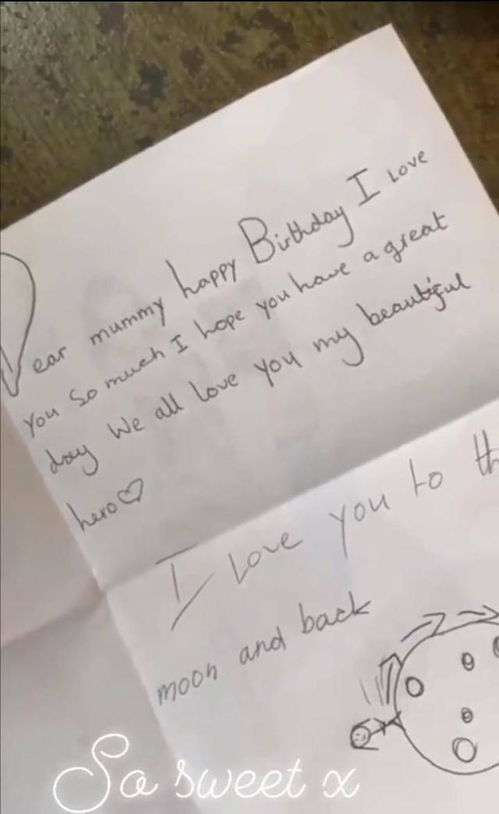 Dear mummy happy Birthday I Love
you so much I hope you have a great
day We all love you my beautiful
hero♡
I Love you to th
moon and back
So sweet x